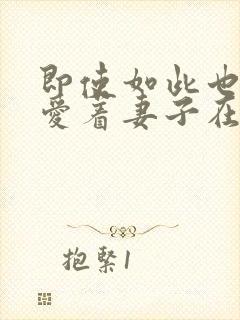 即使如此也
爱着妻子在
抱紧1